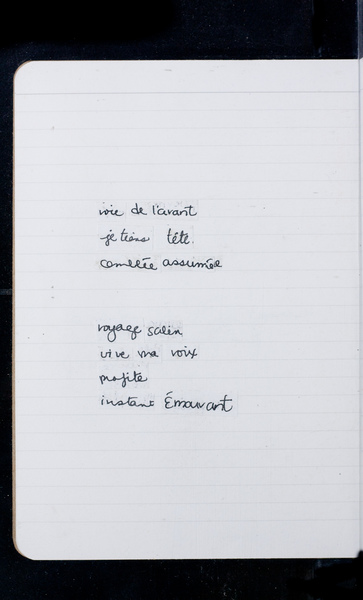 voie de l'avant
je tiens tête.
assumée
voyage salin
vive ma voix
profite
instant Émouvant